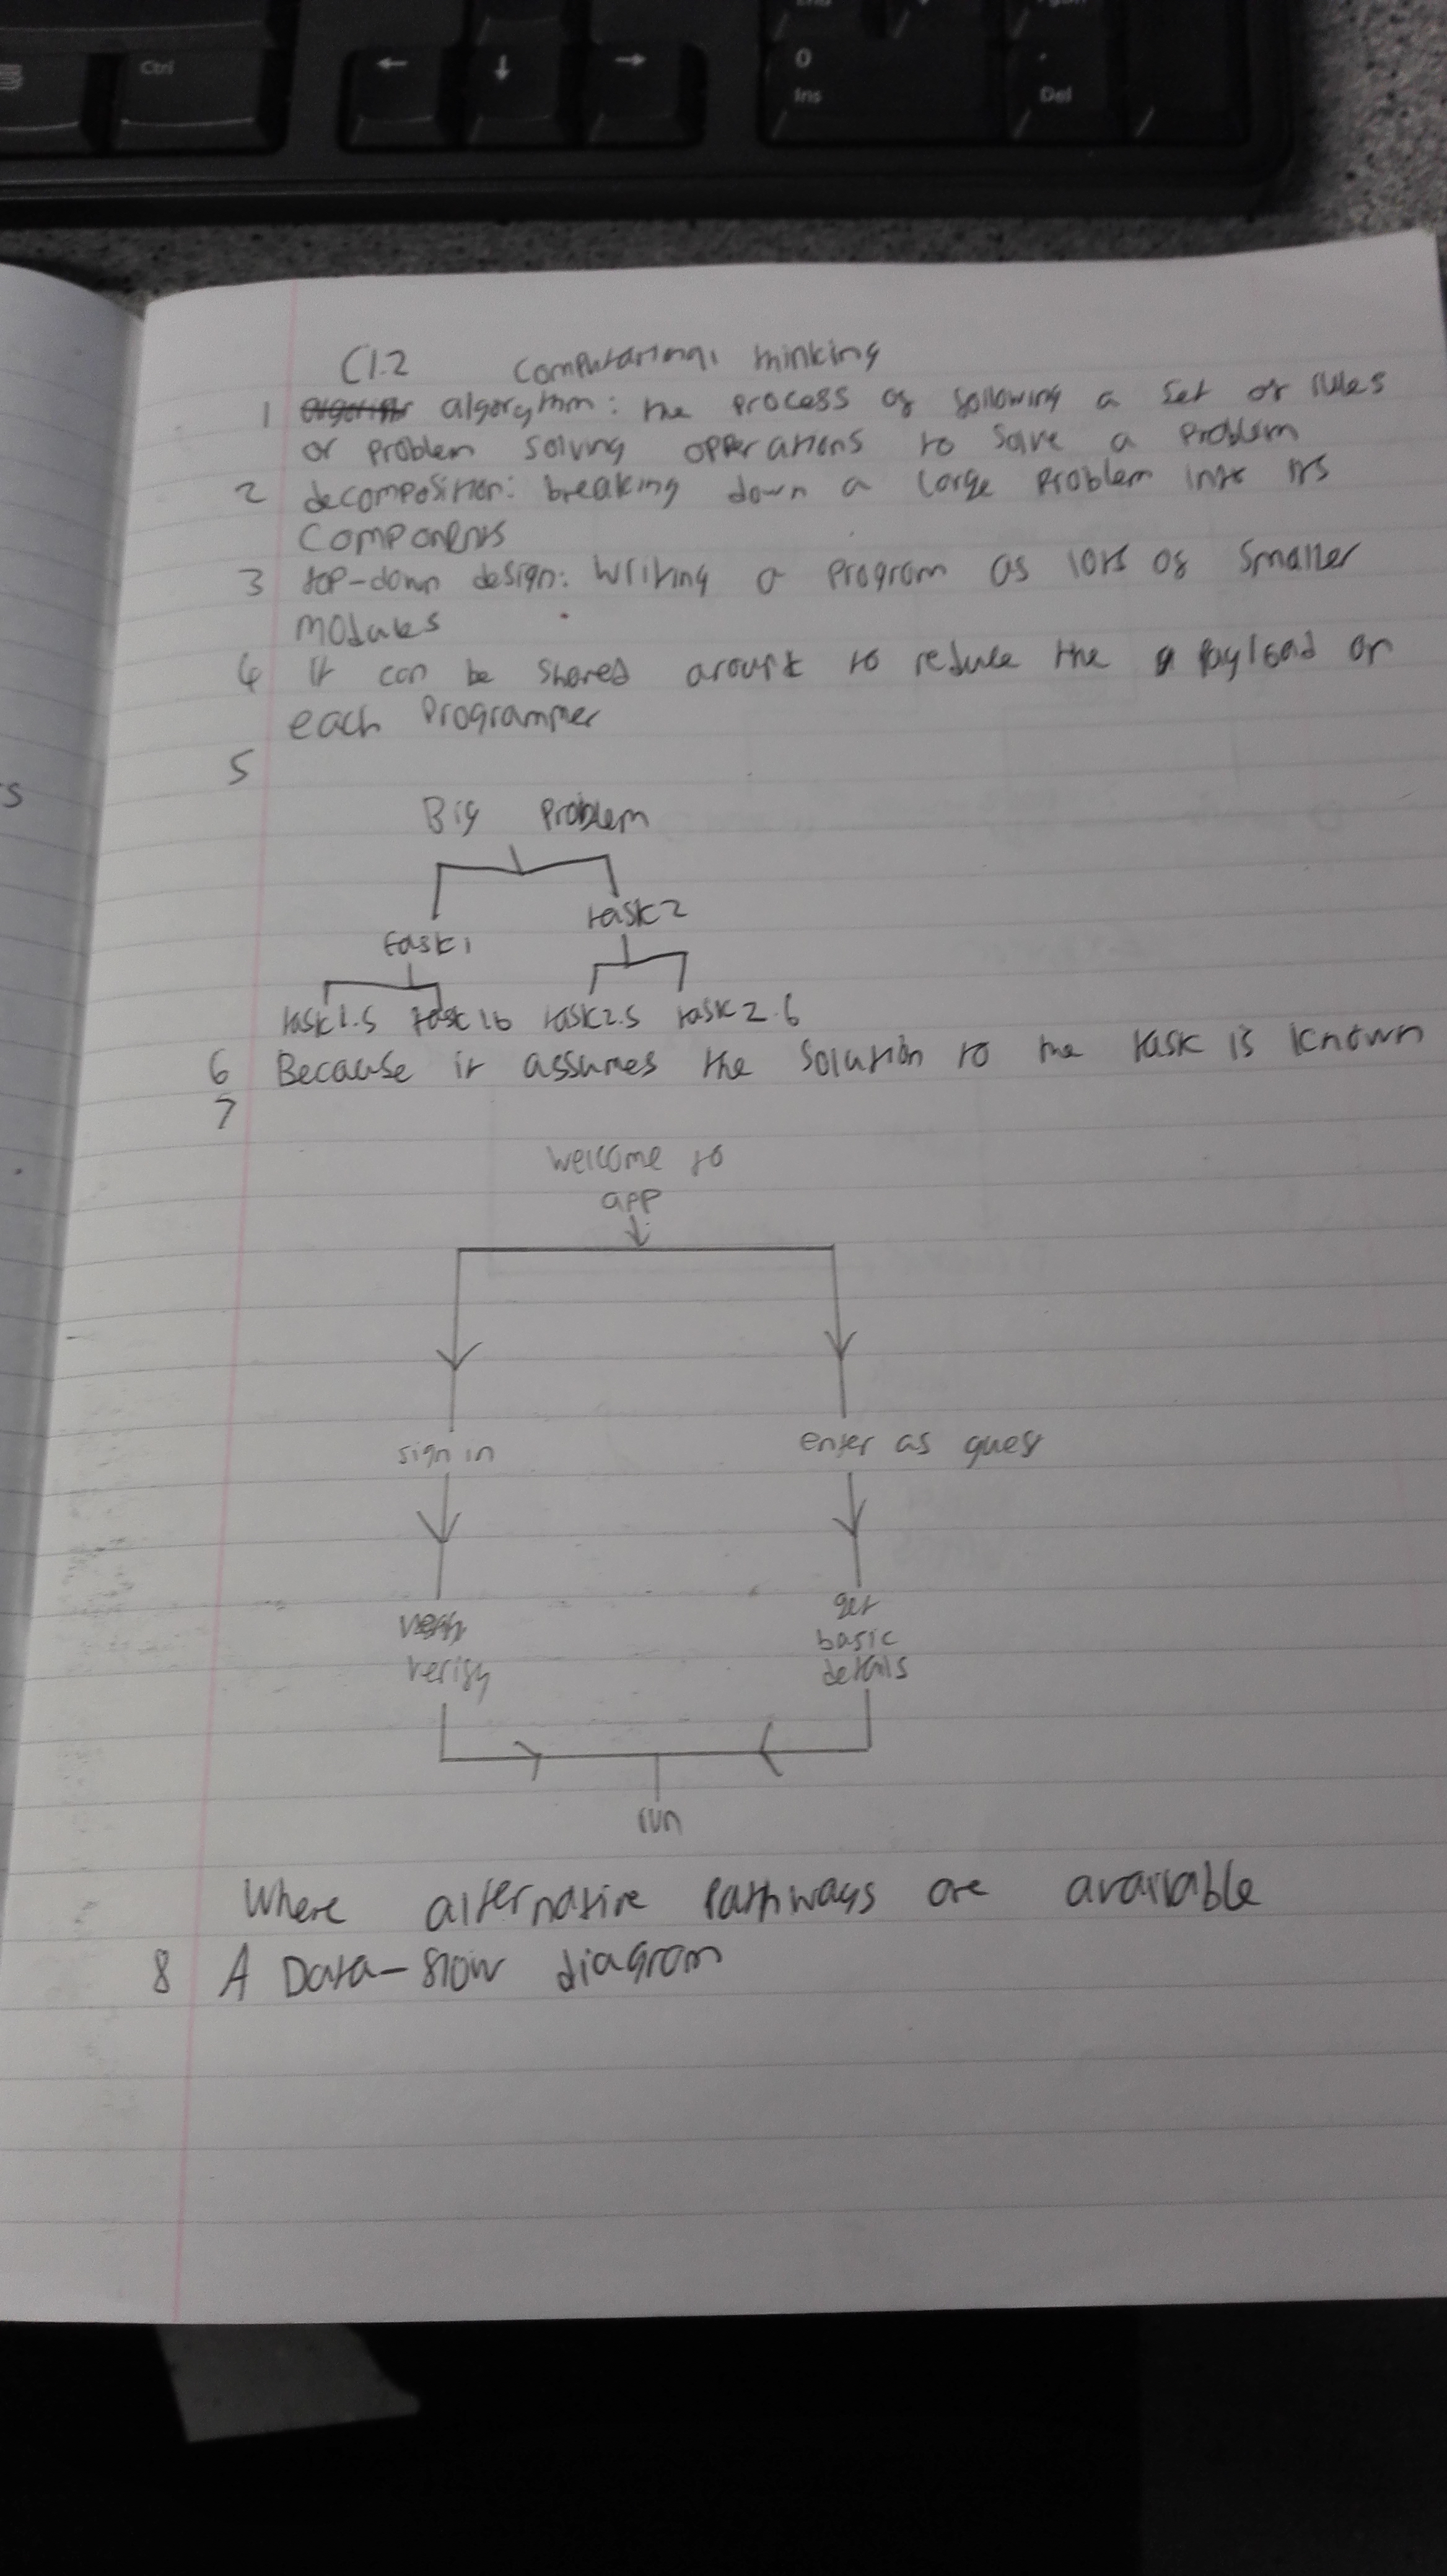 Ctrl
←
↓
→
0
Ins
.
Del
C1.2 Computational thinking
1 algorythm: the process of following a set of rules
or problem solving opperations to solve a problem
2 decomposition: breaking down a large problem into its
components
3 top-down design: writing a program as lots of smaller
modules
4 it can be shared around to reduce the payload on
each programmer
5
s
Big problem
task 2
task 1
task 1.5 task 1.6 task 2.5 task 2.6
6 Because it assumes the solution to the task is known
7
welcome to
app
sign in enter as guest
verify
get
basic
details
run
Where alternative pathways are available
8 A Data-flow diagram